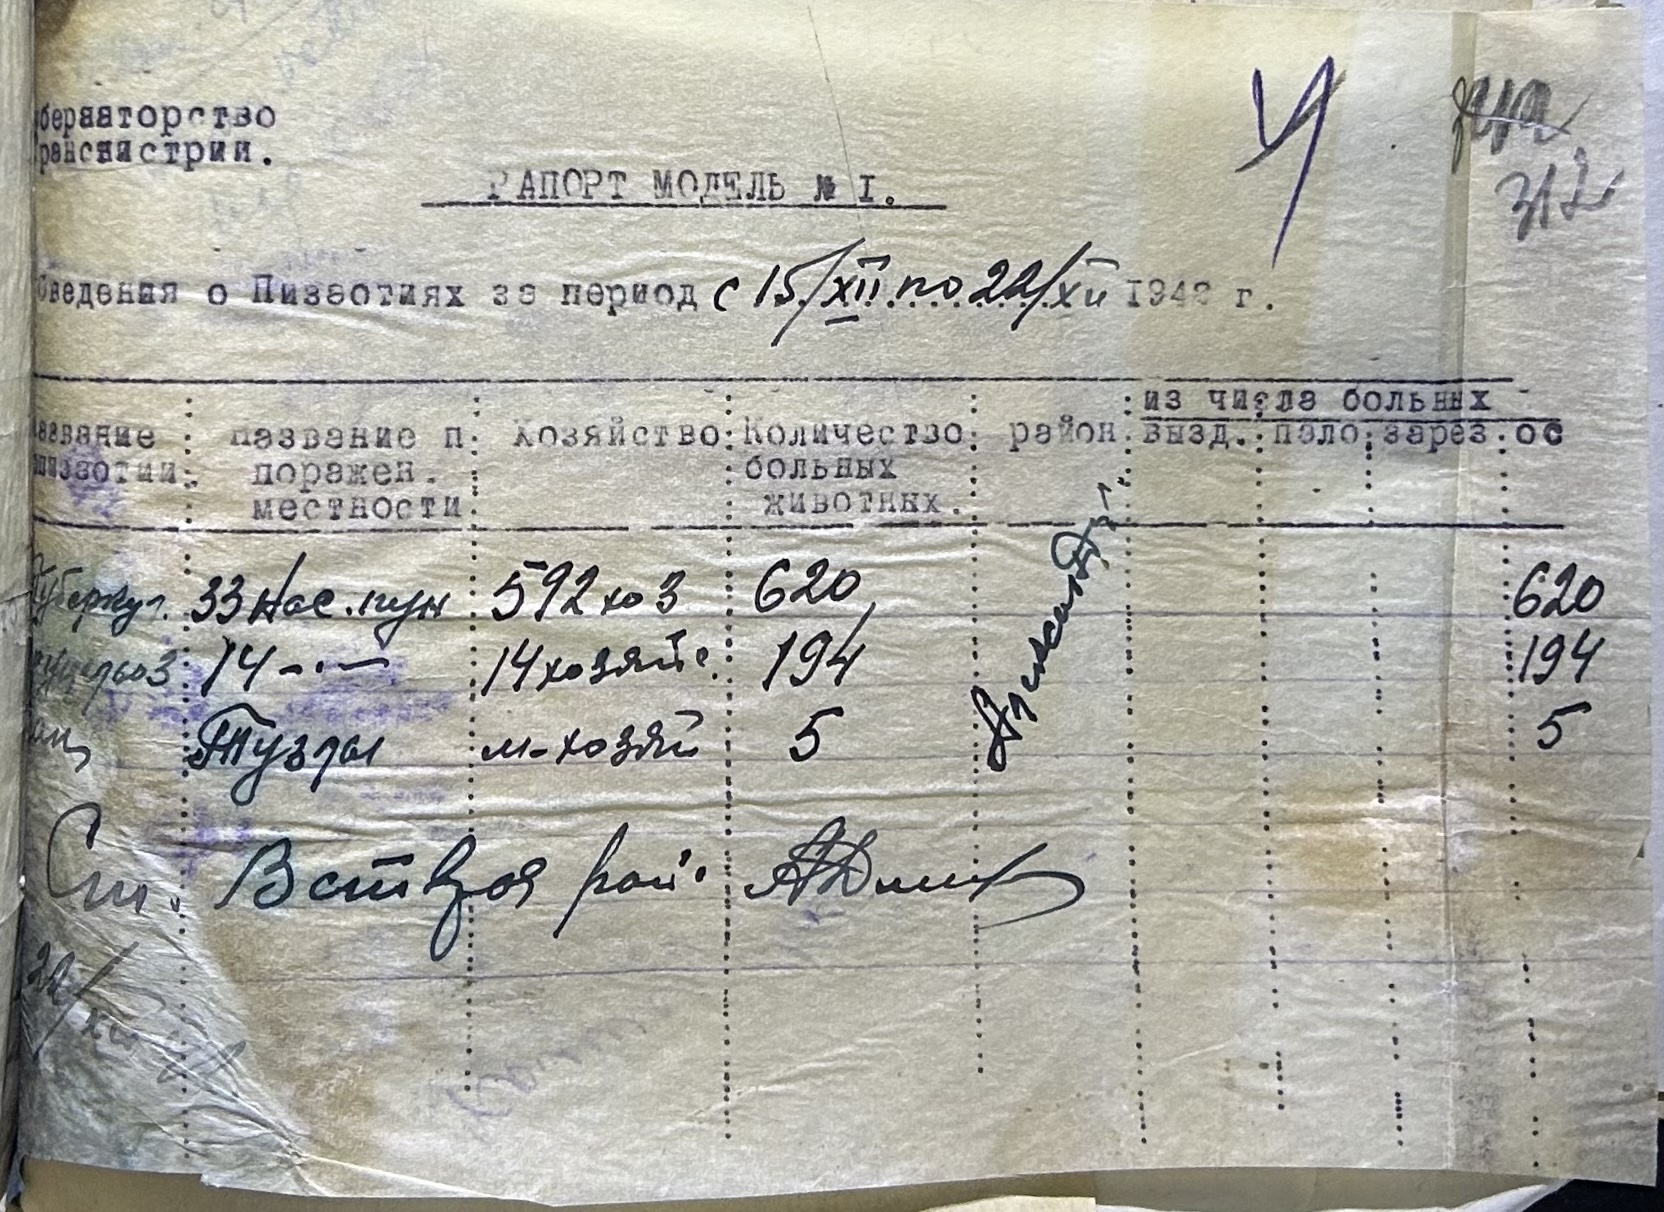 бернаторство
ранснистрии.
312
РАПОРТ МОДЕЛЬ № I.
Сведения о Пизаотиях за период с 15/XII по 22/XII 1942 г.
из числа больных
азвание : название п : Хозяйство : Количество : район : вызд. : пало : зарез : ос
пизаотии : поражен. больных
местности животных.
Туберкул. 33 нас. пун 592 хоз 620 620
14 -·- 14 хозяйс. 194 194
Тузлы м-хозяй 5 5
Ст. Вет врач рай.
22/XII